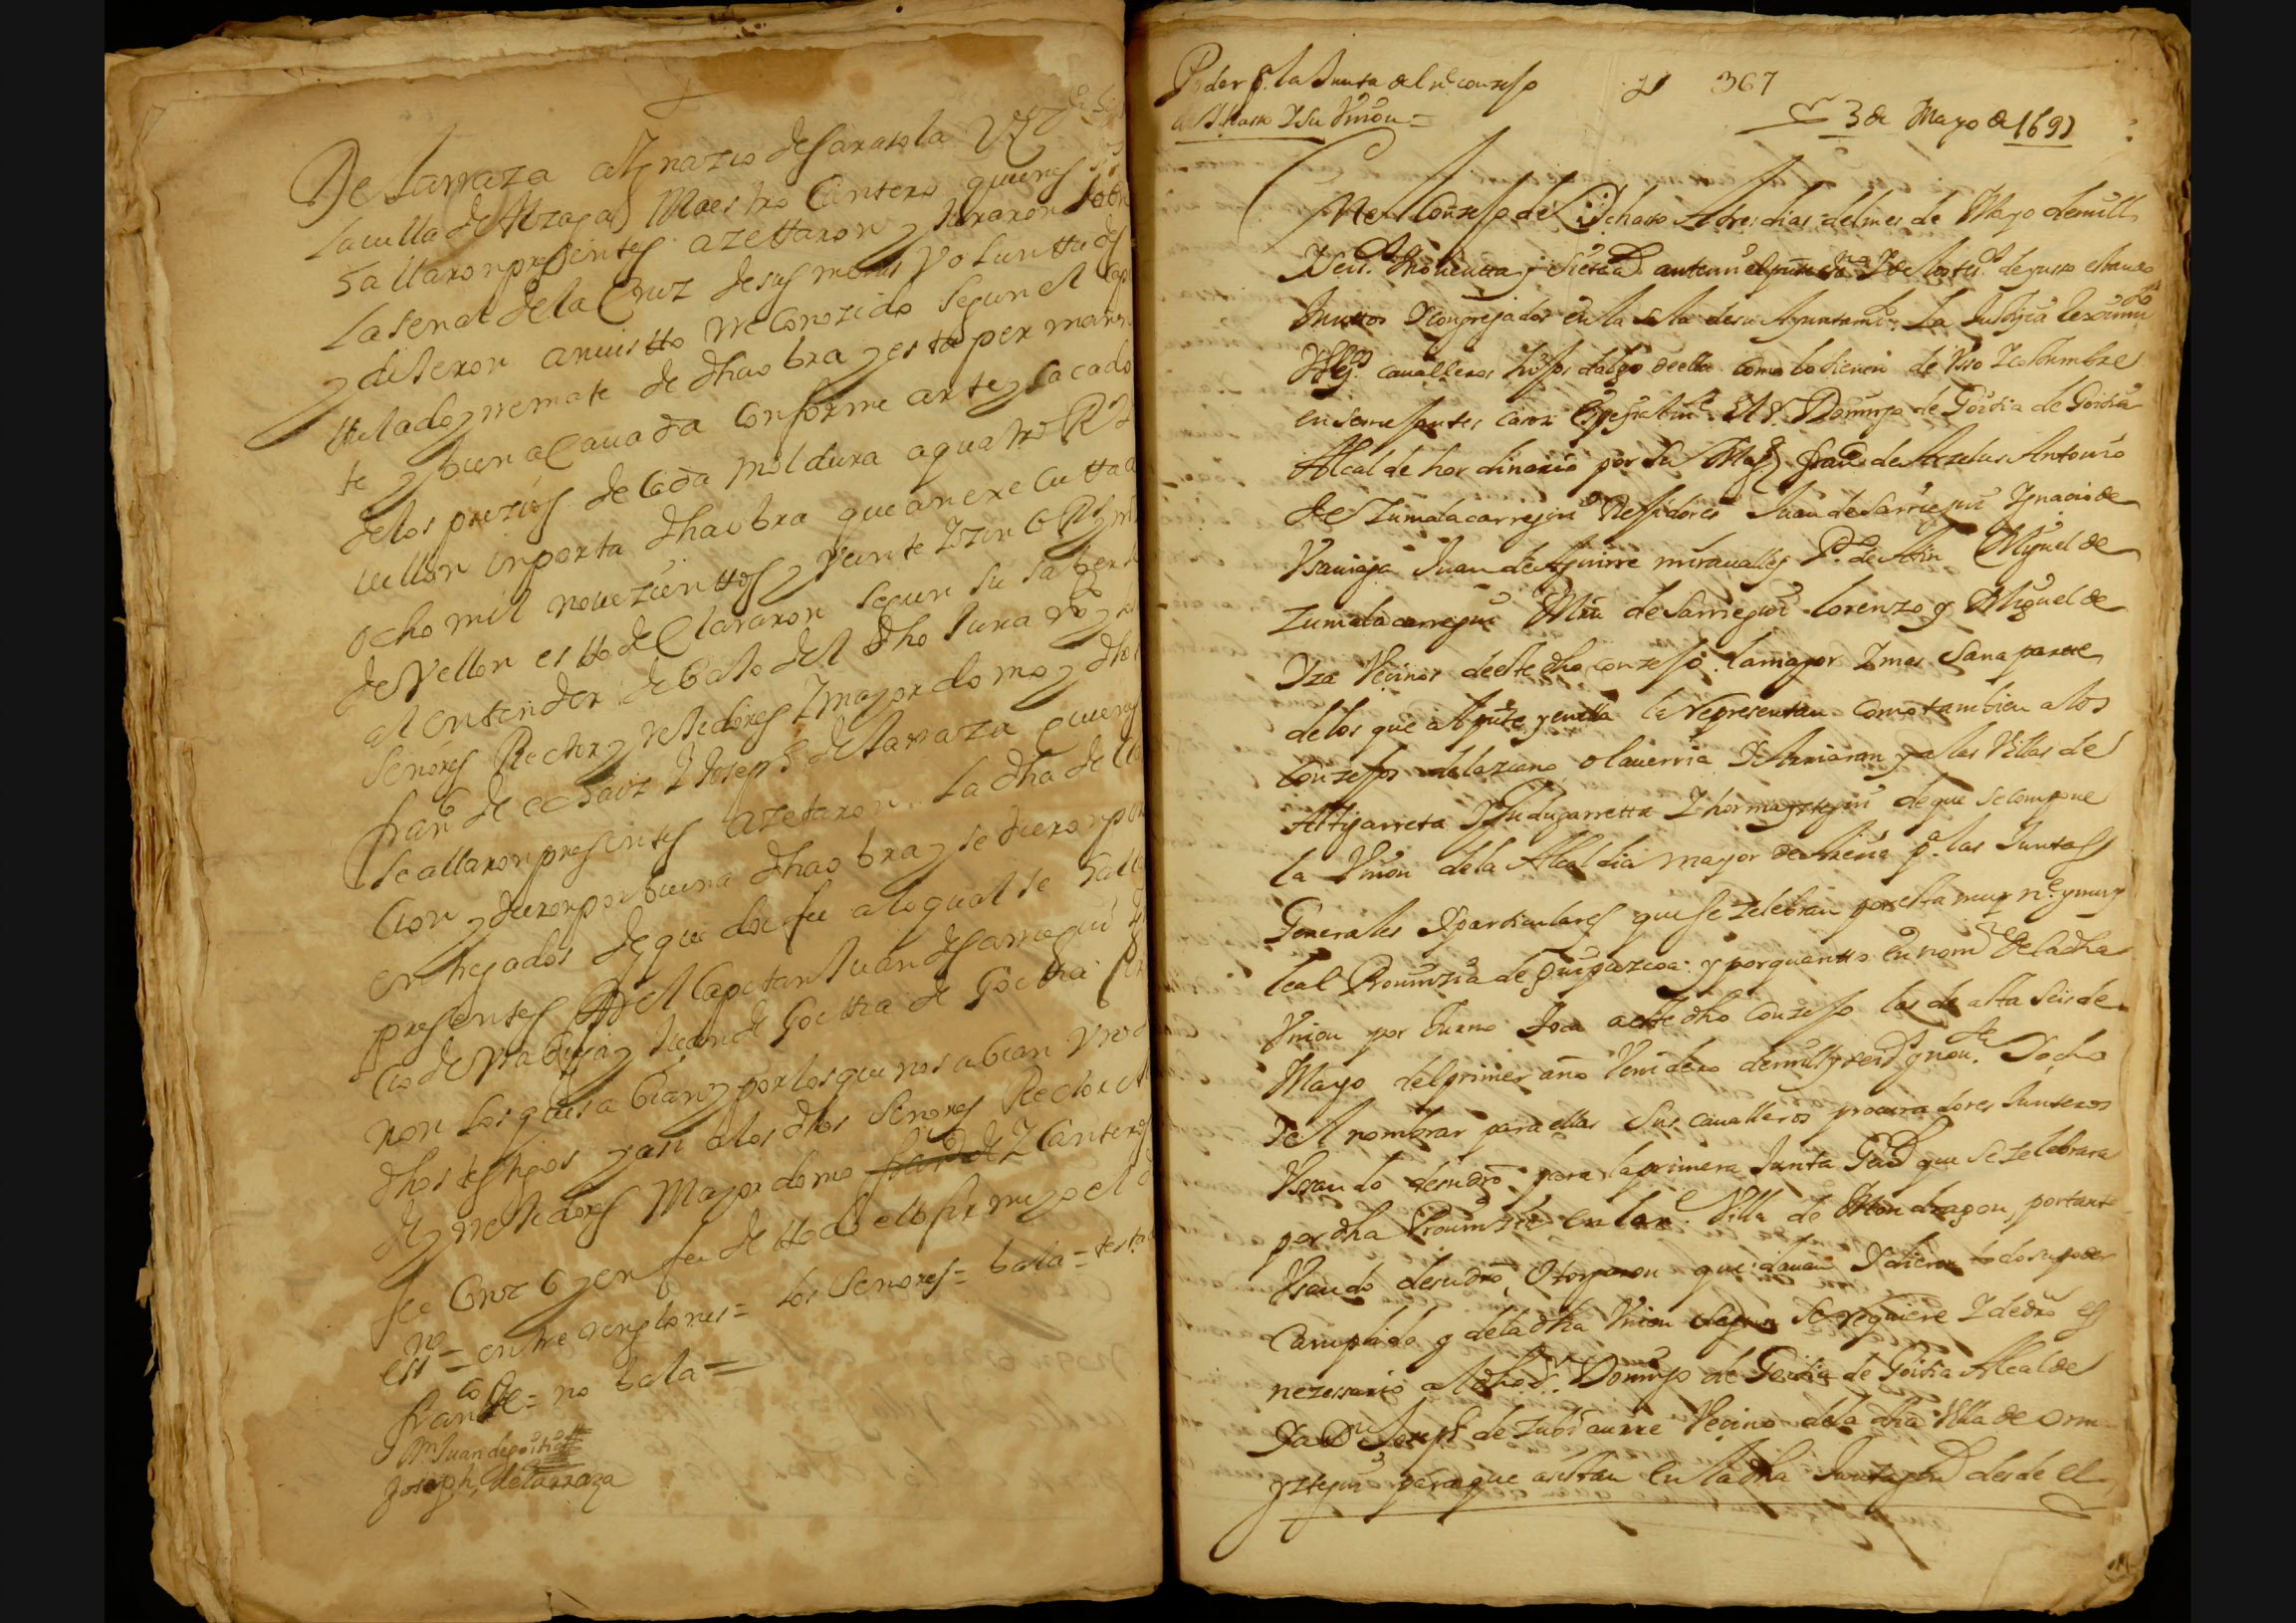 De Larraza a Ygnazio de Saratola Vº
La villa de Alzaga Maestro Cantero quienes
Sallaron presentes azettaron y juraron sobre
la senal de la Cruz de sus meras Voluntades
y dijeron an visto rreConozido segun el Cap
ttulado y rremate de dha obra y esta per manen
te y bien aCauada Conforme arte y sacado
de los prezios de Cada moldura a quatro Rs d
vellon inporta dha obra que an exeCuttad
ocho mil nouezienttos y veinte y zinco Rs y m
de Vellon esto deClararon segun su saber
el entender debajo del dho Jura
Señores Rector y rrejidores y mayordomo y dho
franco de echaiz y Joseph de Larraza quienes
se allaron presentes azetaron la dha decla
Cion y dieron por buena dha obra y se dieron por
entregados de que doi fee a lo qual se Sall
presentes el Capitan Juan de Sarriegui
Juan de Goettia de Goettia
ron los que sabian y por los que no sabian Vno d
dhos testigos y assi a los dhos Señores Rector
de y rrejidores Mayordomo y Canteros
fee ConozCo y en fee de ttodo ello firme yo el
essno = entre renglones = los Señores = bala = testa
franco de = no bala =
Mn Juan de goitia
Joseph de larraza
Poder pa la Junta del n. conzejo
de Ychasso y su Vnion =
367
3 de Mayo de 1697
En el Conzejo de Ychasso A tres dias del mes de Mayo de mill
Seisos Nobentta y siete as ante mi el press no y testigos de yusso estando
Junttos y congregados en la sala de su Ayuntamto La Justicia Reximi
Vos caualleros hijos dalgo de ella como lo tienen de Vso y costumbre
en semejantes casos Espezialmte El Sr Domingo de Goitia de Goitia
Alcalde hordinario por su Magd franco de Arzelus Antonio
de Zumalacarregui Rejidores Juan de Sarriegui Ygnacio de
Vsauiaga Juan de Aguirre miraualles Po de Miguel de
Zumalacarregui Min de Sarriegui lorenzo y Miguel de
Yza Vecinos de este dho conzejo la mayor y mas sana parte
de los que al press te y en ella le representan como tambien a los
Conzejos de lazcano olauerria y Arriaran y a las Villas de
Attijarreta y Gudugarretta y hormaiztegui de que se compone
la Vnion de la Alcaldia mayor de Areria pa las Juntas
Generales y particulares que se zelebran por esta muy ne y muy
leal Prouinzia de Guipuzcoa y por quanto en nome de la dha
Vnion por turno toca a este dho Conzejo las de asta seis de
Mayo del primer año Venidero de mill y seisos y nouta y ocho
y el nombrar para ellas Sus caualleros procuradores Junteros
Vsando de su dro para la primera Junta Genl que se zelebrara
por dha Prouinzia en la ne Villa de Mondragon, por tanto
Vsando de su dro Otorgaron que dauan y dieron todo su poder
Cumplido y de la dha Vnion segun se requiere y de dro es
nezessario al dho Sr Domingo de Goitia de Goitia Alcalde
y a Dn Joseph de Zubiaurre Vecino de la dha Villa de orma
yztegui para que asistan en la dha Junta gnl desde el